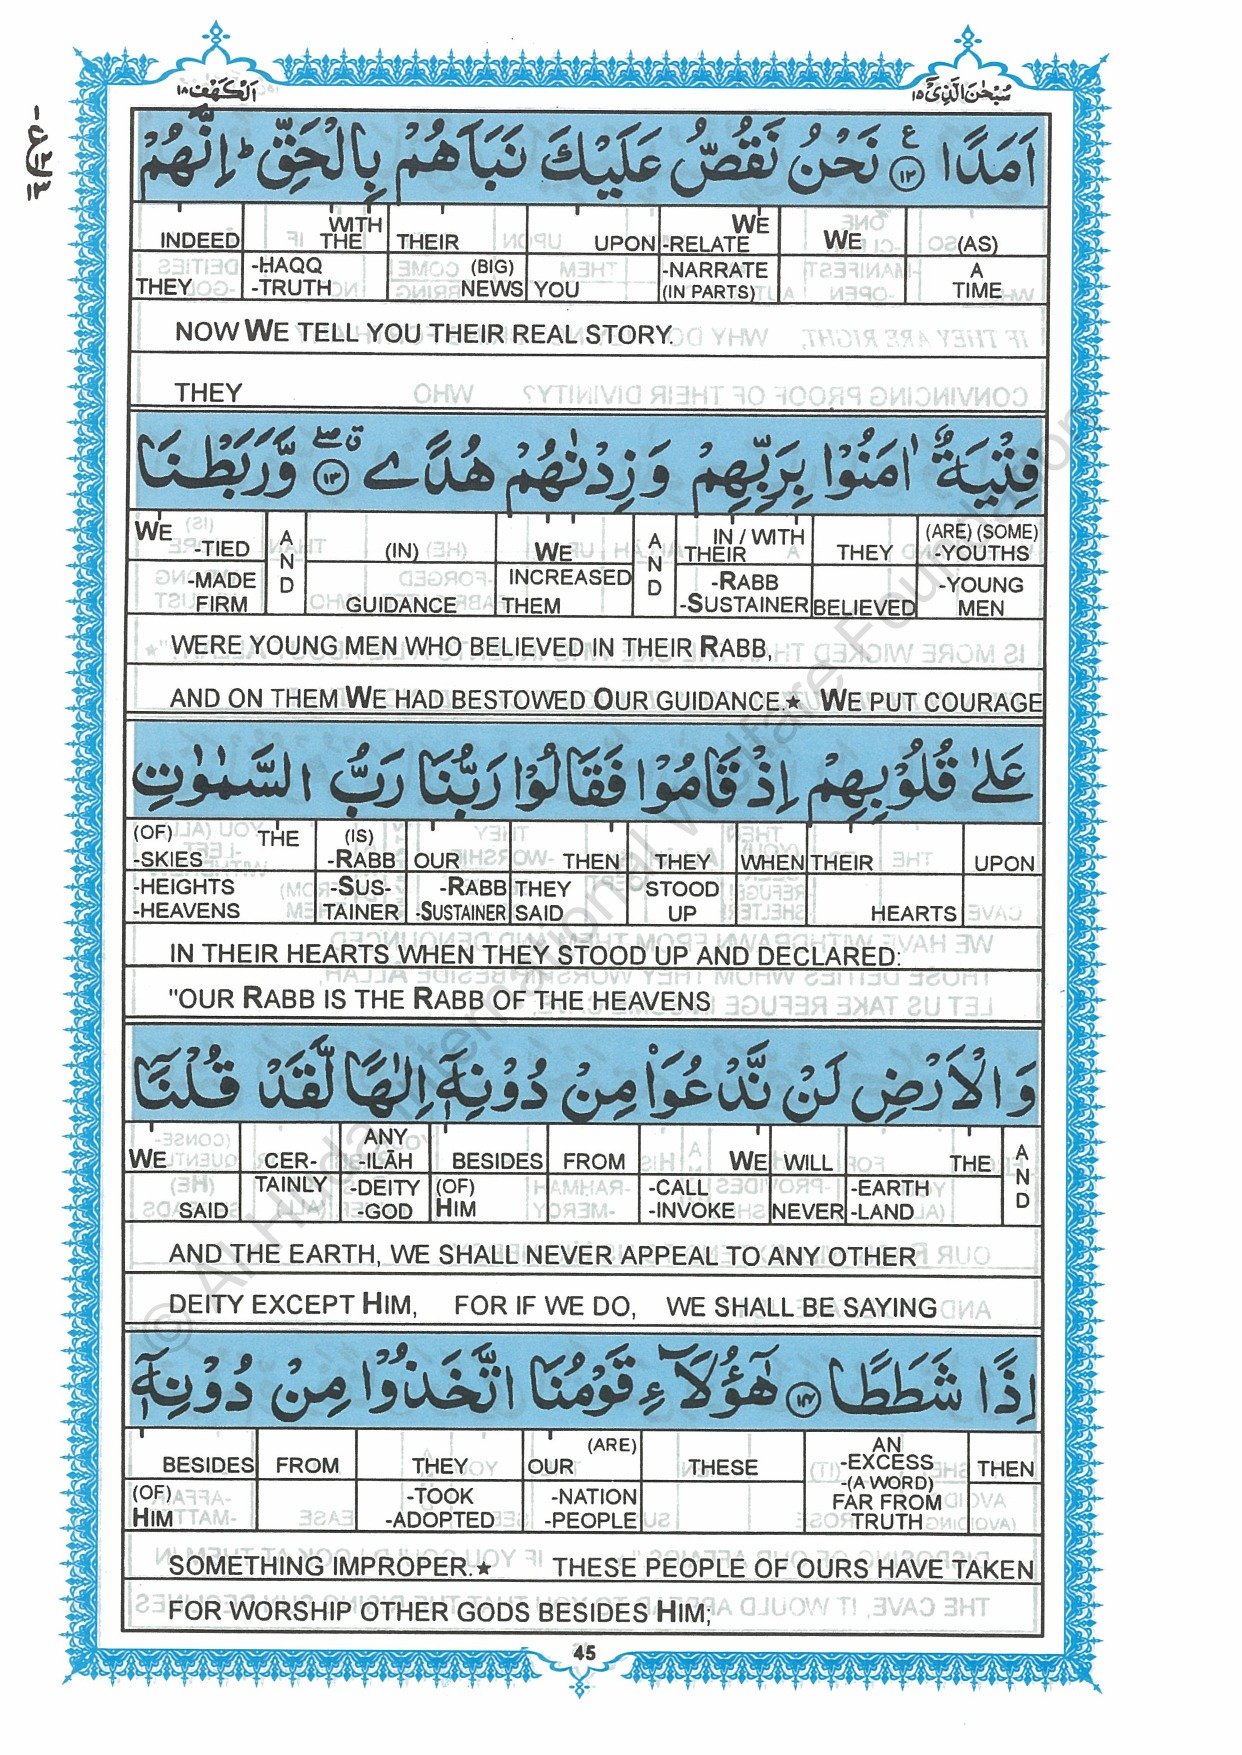 اَلْكَهْف ١٨
سُبْحٰنَ الَّذِىْٓ ١٥
اَمَدًا ١٢ ع نَحْنُ نَقُصُّ عَلَيْكَ نَبَاَهُمْ بِالْحَقِّ ط اِنَّهُمْ
INDEED | WITH THE | THEIR | UPON | WE -RELATE | WE | (AS)
THEY | -HAQQ -TRUTH | (BIG) NEWS | YOU | -NARRATE (IN PARTS) | A TIME
NOW WE TELL YOU THEIR REAL STORY.
THEY
فِتْيَةٌ اٰمَنُوْا بِرَبِّهِمْ وَ زِدْنٰهُمْ هُدًى ١٣ وَّرَبَطْنَا
WE -TIED | AND | (IN) | WE | AND | IN / WITH THEIR | THEY | (ARE) (SOME) -YOUTHS
-MADE FIRM | GUIDANCE | INCREASED THEM | -RABB -SUSTAINER | BELIEVED | -YOUNG MEN
WERE YOUNG MEN WHO BELIEVED IN THEIR RABB,
AND ON THEM WE HAD BESTOWED OUR GUIDANCE.★ WE PUT COURAGE
عَلٰى قُلُوْبِهِمْ اِذْ قَامُوْا فَقَالُوْا رَبُّنَا رَبُّ السَّمٰوٰتِ
(OF) THE -SKIES | (IS) -RABB | OUR | THEN | THEY | WHEN | THEIR | UPON
-HEIGHTS -HEAVENS | -SUS- TAINER | -RABB -SUSTAINER | THEY SAID | STOOD UP | HEARTS
IN THEIR HEARTS WHEN THEY STOOD UP AND DECLARED:
"OUR RABB IS THE RABB OF THE HEAVENS
وَ الْاَرْضِ لَنْ نَّدْعُوَا۟ مِنْ دُوْنِهٖٓ اِلٰهًا لَّقَدْ قُلْنَآ
WE | CER- | ANY -ILĀH | BESIDES | FROM | WE | WILL | THE | AND
SAID | TAINLY | -DEITY -GOD | (OF) HIM | -CALL -INVOKE | NEVER | -EARTH -LAND
AND THE EARTH, WE SHALL NEVER APPEAL TO ANY OTHER
DEITY EXCEPT HIM, FOR IF WE DO, WE SHALL BE SAYING
اِذًا شَطَطًا ١٤ هٰٓؤُلَآءِ قَوْمُنَا اتَّخَذُوْا مِنْ دُوْنِهٖٓ
BESIDES | FROM | THEY | (ARE) OUR | THESE | AN -EXCESS | THEN
(OF) HIM | -TOOK -ADOPTED | -NATION -PEOPLE | -(A WORD) FAR FROM TRUTH
SOMETHING IMPROPER.★ THESE PEOPLE OF OURS HAVE TAKEN
FOR WORSHIP OTHER GODS BESIDES HIM;
45
© Al Huda International Welfare Foundation